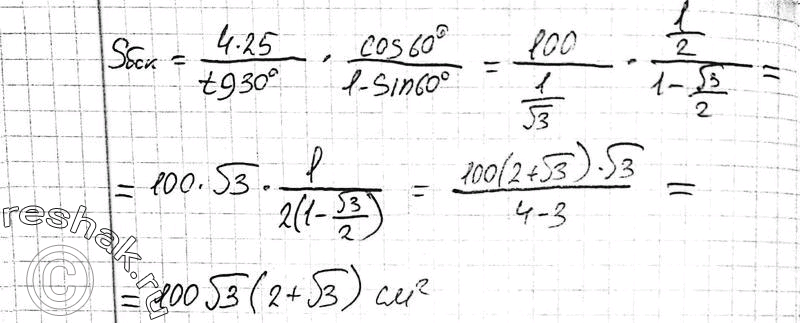 Sбок = 4·25/tg30° · cos60°/(1-sin60°) = 100/(1/√3) · (1/2)/(1-√3/2) =
= 100·√3·1/(2(1-√3/2)) = 100(2+√3)·√3/(4-3) =
= 100√3(2+√3) см²
reshak.ru
©